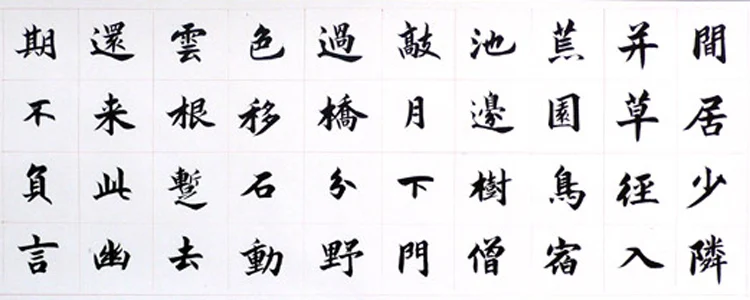 間居少隣
并草徑入
荒園鳥宿
池邊樹僧
敲月下門
過橋分野
色移石動
雲根蹔去
還来此幽
期不負言